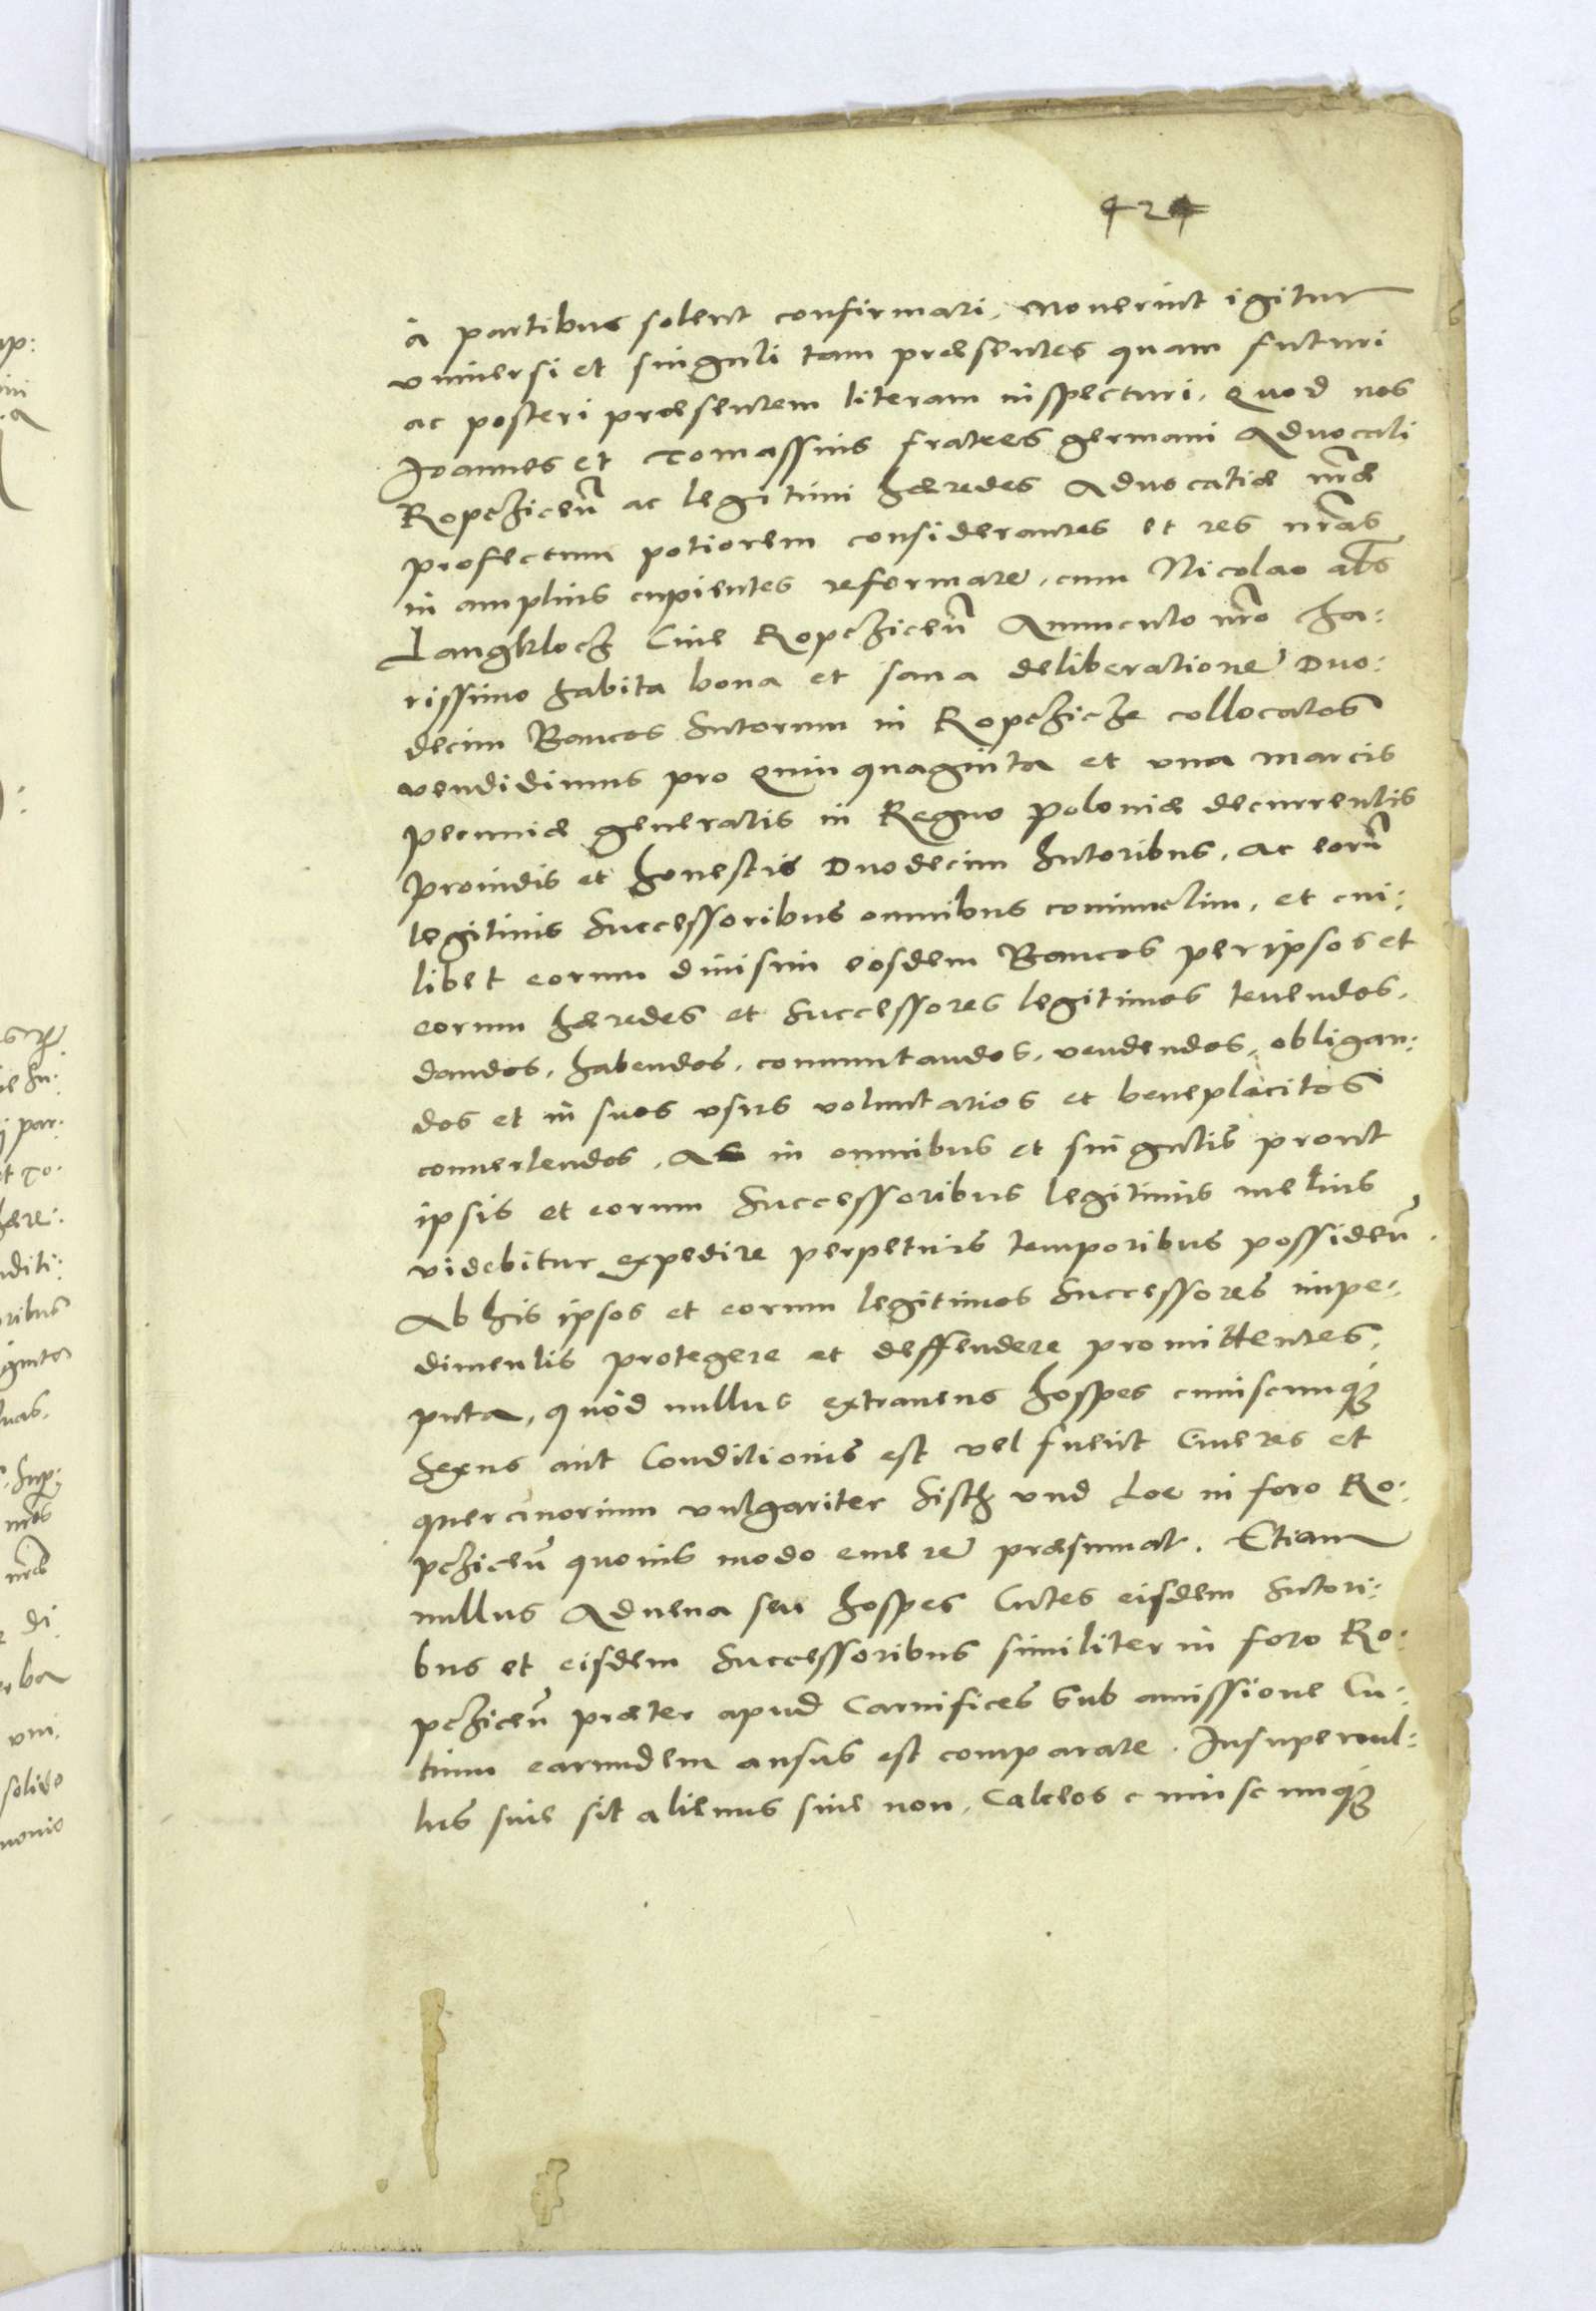 424
à partibus solent confirmari. Noverint igitur
universi et singuli tam præsentes quam futuri
ac posteri præsentem literam inspecturi. Quod nos
Joannes et Tomassius fratres germani Advocati
Ropchiceñ ac legitimi hæredes Advocatiæ nr̃æ
profectum potiorem considerantes et res nr̃as
in amplius cupientes reformare, cum Nicolao als
Langkloch Cive Ropchiceñ Avunculo nr̃o cha:
rissimo habita bona et sana deliberatione Duo:
decim Bancos Sutorum in Ropchicze collocatos
vendidimus pro Quinquaginta et una marcis
pecuniæ generalis in Regno Poloniæ decurrentis
providis et honestis Duodecim Sutoribus, ac eorũ
legitimis Successoribus omnibus coniunctim, et cui:
libet eorum divisim eosdem Bancos per ipsos et
eorum hæredes et Successores legitimos tenendos.
dandos, habendos, commutandos, vendendos, obligan:
dos et in suos usus voluntarios et beneplacitos
convertendos, Ac in omnibus et singulis prout
ipsis et eorum Successoribus legitimis melius
videbitur expedire perpetuis temporibus possideñ.
Ab his ipsos et eorum legitimos Successores impe:
dimentis protegere et deffendere promittentes,
puta, quòd nullus extraneus hospes cuiuscunq3
Sexus aut Conditionis est vel fuerit Cineres et
quercinorium vulgariter Fisch und Loe in foro Ro:
pchiceñ quovis modo emere præsumat. Etiam
nullus Advena seu hospes Cutes eisdem Sutori:
bus et eisdem Successoribus similiter in foro Ro:
pchiceñ præter apud Carnifices sub amissione Cu:
tium earundem ausus est comparare. Insuper nul:
lus sive sit alienus sive non, Calceos cuiuscunq3